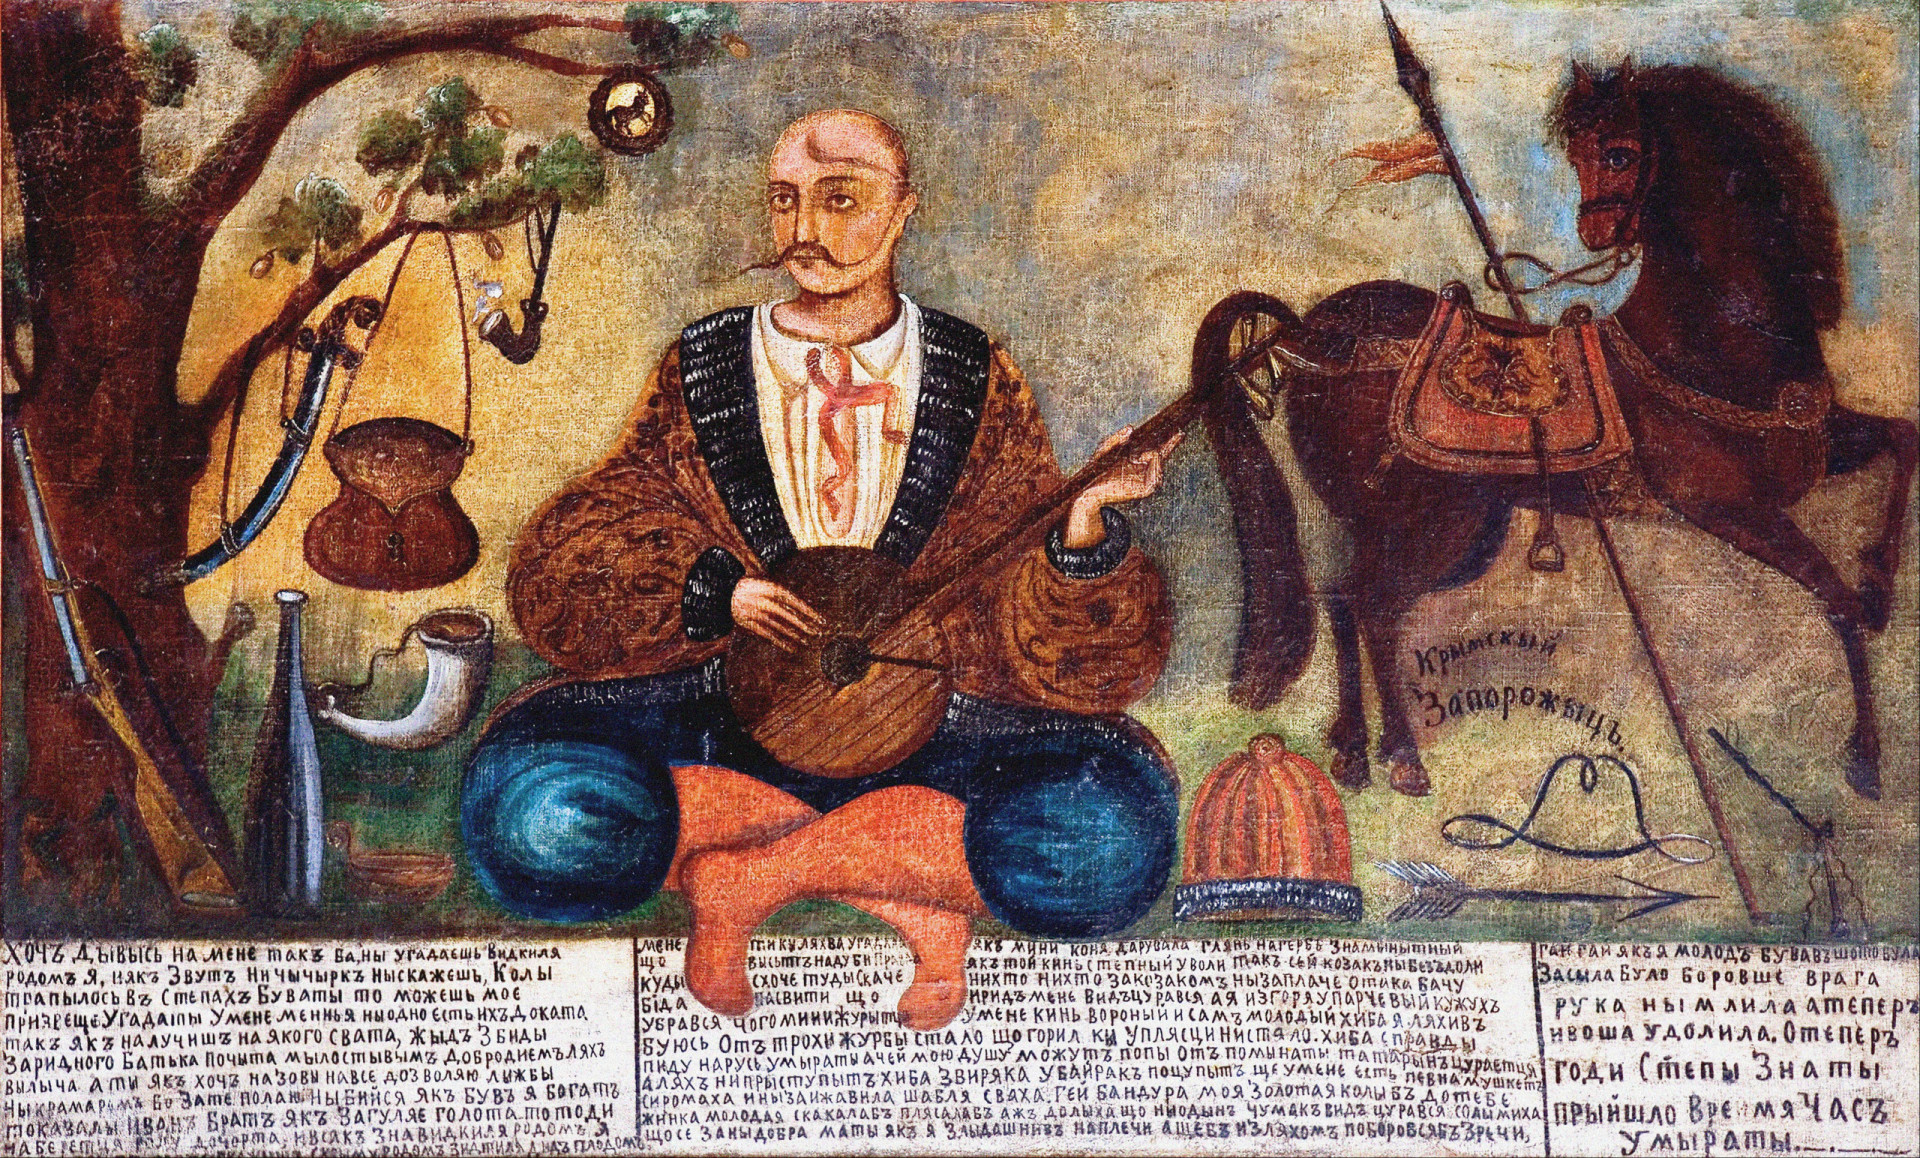 Крымскый
Запорожыцъ.
ХОЧЪ ДЫВЫСЬ НА МЕНЕ ТАКЪ БА, НЫ УГАДАЕШЬ ВИДКИЛЯ
РОДОМЪ Я, И ЯКЪ ЗВУТЪ НИЧЫЧЫРКЪ НЫСКАЖЕШЬ, КОЛЫ
ТРАПЫЛОСЬ ВЪ СТЕПАХЪ БУВАТЫ ТО МОЖЕШЬ МОЕ
ПРИЗВЕЩЕ УГАДАТЫ УМЕНЕ МЕННЬЯ НЫ ОДНО ЕСТЬ ИХЪ ДОКАТА
ТАКЪ ЯКЪ НАЛУЧИШЪ НАЯКОГО СВАТА, ЖЫДЪ ЗБИДЫ
ЗАРИДНОГО БАТЬКА ПОЧЫТА МЫЛОСТЫВЫМЪ ДОБРОДИЕМЪ ЛЯХЪ
ВЫЛЫЧА АТЫ ЯКЪ ХОЧЪ НАЗОВЫ НАВСЕ ДОЗВОЛЯЮ ЛЫЖБЫ
НЫ КРАМАРЕМЪ БО ЗАТЕ ПОЛАЮ НЫ БИЙСЯ ЯКЪ БУВЪ Я БОГАТЪ
ТО КАЗАЛЫ ИВАНЪ БРАТЪ ЯКЪ ЗАГУЛЯЕ ГОЛОТА ТО ТОДИ
НАБЕРЕТЦЯ ДОЧОРТА, ИВСЯКЪ ЗНА ВИДКИЛЯ РОДОМЪ Я
РОДОМЪ
МЕНЕ ЯКЪ МИНИ КОНЯ ДАРУВАЛА ГЛЯНЬ НА ГЕРБЪ ЗНАМЫНЫТНЫЙ
ЩО ЯКЪ ТОЙ КИНЬ СТЕПНЫЙ УВОЛИ ТАКЪ СЕЙ КОЗАКЪ НЫ БЕЗЪ ДОЛИ
КУДЫ СХОЧЕ ТУДЫ СКАЧЕ НИХТО НИХТО ЗА КОЗАКОМЪ НЫ ЗАПЛАЧЕ ОТАКА БАЧУ
БІДА ЩО МЕНЕ ВИДЪЦУРАВСЯ А Я ИЗГОРЯ УПАРЧЕВЫЙ КУЖУХЪ
УБРАВСЯ ЧОГО МИНИ ЖУРЫТЦЯ УМЕНЕ КИНЬ ВОРОНЫЙ И САМЪ МОЛОДЫЙ ХИБА Я ЛЯХИВ
БУЮСЬ ОТЪ ТРОХИ ЖУРБЫ СТАЛО ЩО ГОРИЛКЫ УПЛЯСЦИ НИСТАЛО. ХИБА СПРАВДЫ
ПИДУ НАРУСЬ УМЫРАТЫ АЧЕЙ МОЮ ДУШУ МОЖУТЪ ПОПЫ ОТЪ ПОМЫНАТЫ ТАТАРЫНЪ ЦУРАЕТЦЯ
А ЛЯХЪ НИ ПРЫСТУПЫТЪ ХИБА ЗВИРЯКА УБАЙРАКЪ ПОЦУПЫТЪ ЩЕ УМЕНЕ ЕСТЬ ПЕВНА МУШКЕТЪ
СИРОМАХА И НЫ ЗАИЖАВИЛА ШАБЛЯ СВАХА. ГЕЙ БАНДУРА МОЯ ЗОЛОТАЯ КОЛЫБЪ ДО ТЕБЕ
ЖИНКА МОЛОДАЯ СКАКАЛАБЪ ПЛЯСАЛАБЪ АЖЪ ДО ЛЫХА ЩО НЫ ОДЫНЪ ЧУМАКЪ ВИДЪЦУРАВСЯ СОЛЫ МИХА
ЩОСЕ ЗАНЫДОБРА МАТЫ ЯКЪ Я НАПЛЕЧИ АЩЕБЪ ИЗ ЛЯХОМЪ ПОБОРОВСЯБЪ ЗРЕЧИ,
ГАЙ ГАЙ ЯКЪ Я МОЛОДЪ БУВАВЪ ШО ТО БУЛА
ЗА СЫЛА БУЛО БОРОВШЕ ВРАГА
РУКА НЫ МЛИЛА А ТЕПЕРЪ
И ВОША УДОЛИЛА. ОТЕПЕРЪ
ГОДИ СТЕПЫ ЗНАТЫ
ПРЫЙШЛО ВРЕМЯ ЧАСЪ
УМЫРАТЫ.